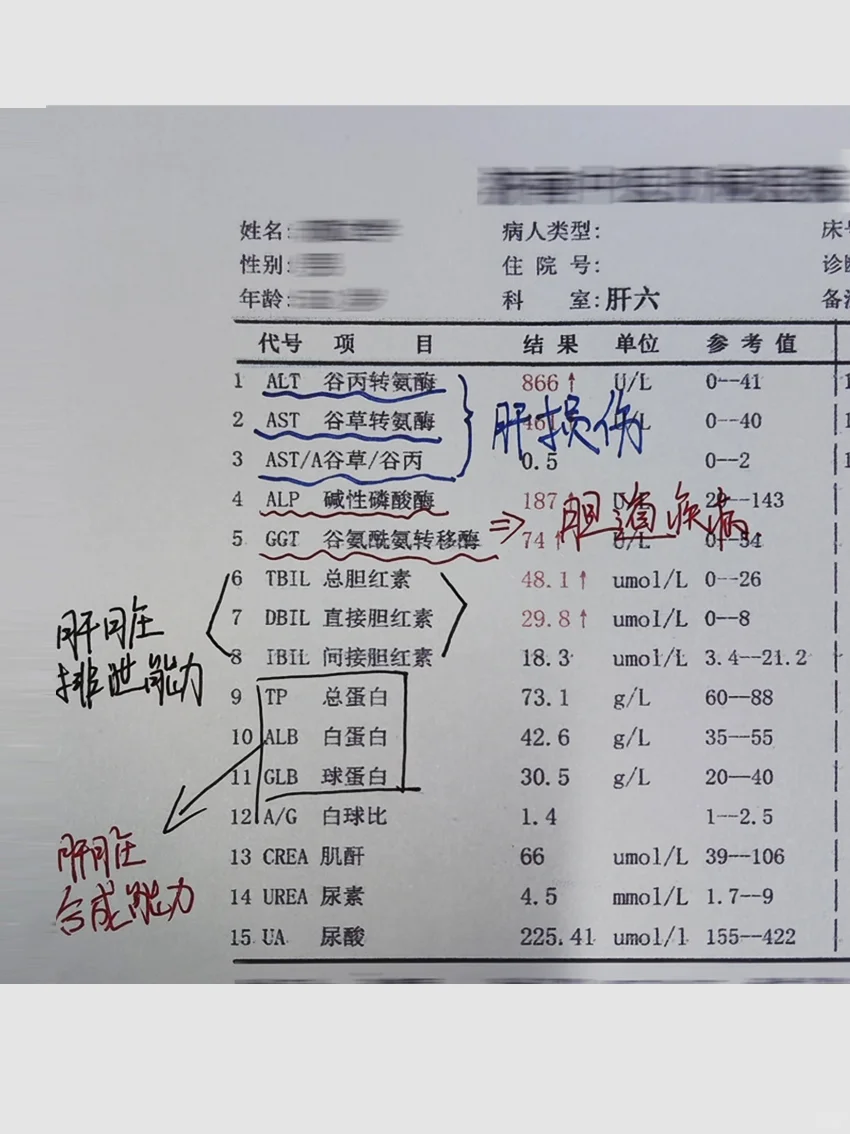 姓名:
病人类型:
床号
性别:
住 院 号:
诊断
年龄:
科 室: 肝六
备注
代号 项 目 结 果 单位 参 考 值
1 ALT 谷丙转氨酶 866↑ U/L 0--41
2 AST 谷草转氨酶 461 /L 0--40
3 AST/A谷草/谷丙 0.5 0--2
肝损伤
4 ALP 碱性磷酸酶 187 --143
5 GGT 谷氨酰氨转移酶 74↑ U/L 0--54
⇒ 胆道疾病
6 TBIL 总胆红素 48.1↑ umol/L 0--26
7 DBIL 直接胆红素 29.8↑ umol/L 0--8
8 IBIL 间接胆红素 18.3 umol/L 3.4--21.2
肝脏
排泄能力
9 TP 总蛋白 73.1 g/L 60--88
10 ALB 白蛋白 42.6 g/L 35--55
11 GLB 球蛋白 30.5 g/L 20--40
12 A/G 白球比 1.4 1--2.5
肝脏
合成能力
13 CREA 肌酐 66 umol/L 39--106
14 UREA 尿素 4.5 mmol/L 1.7--9
15 UA 尿酸 225.41 umol/l 155--422